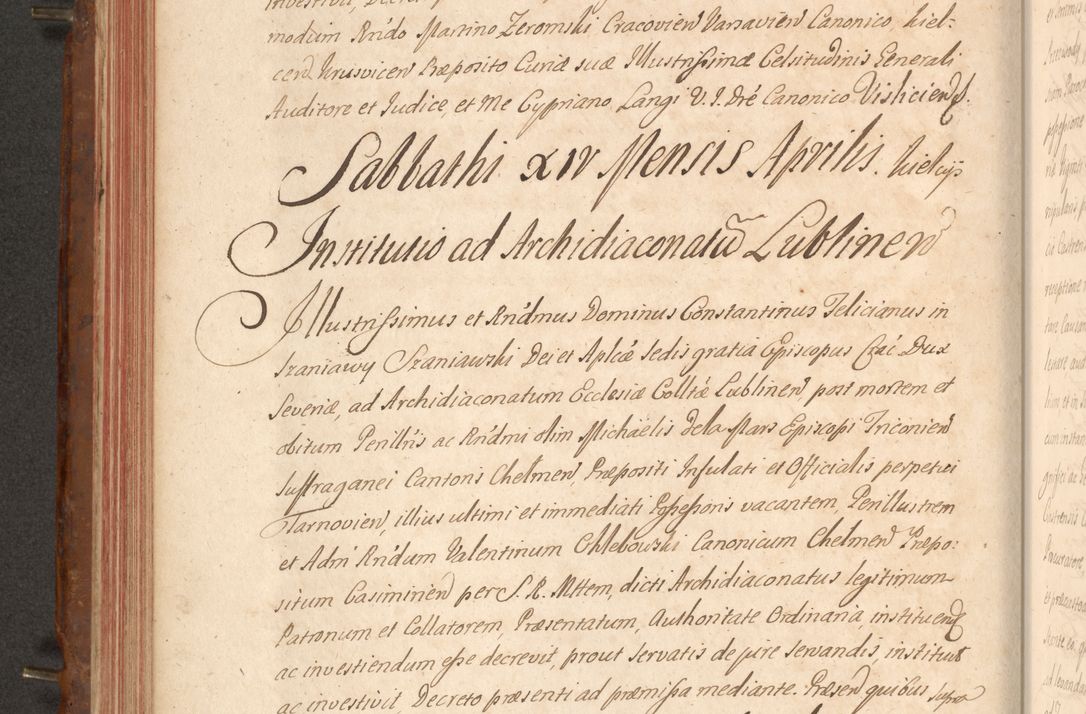 modum Rndo Martino Zeromski Cracovien Varsavien Canonico Kiel:
cen Krusvicen Præposito Curiæ suæ Illustrissimæ Celsitudinis Generali
Auditore et Iudice, et Me Cypriano Langi V. I. Dre Canonico Visliciens.
Sabbathi XIV Mensis Aprilis. Kielcijs
Institutio ad Archidiaconatũ Lublinen
Illustrissimus et Rndmus Dominus Constantinus Felicianus in
Szaniawy Szaniawski Dei et Aplcæ Sedis gratia Episcopus Crac Dux
Severiæ, ad Archidiaconatum Ecclesiæ Colltæ Lublinen post mortem et
obitum Perillris ac Rndmi olim Michaëlis de la Mars Episcopi Triconien
Suffraganei Cantoris Chelmen Præpositi Infulati et Officialis perpetui
Tarnovien, illius ultimi et immediati Possessoris vacantem, Perillustrem
et Adm Rndum Valentinum Chlebowski Canonicum Chelmen Præpo:
situm Casiminen per S. R. Mttem, dicti Archidiaconatus legitimum
Patronum et Collatorem, Præsentatum, Authoritate Ordinaria, instituend
ac investiendum esse decrevit, prout servatis de jure servandis, instituit
ac investivit, Decreto præsenti ad præmissa mediante. Præsen quibus supra